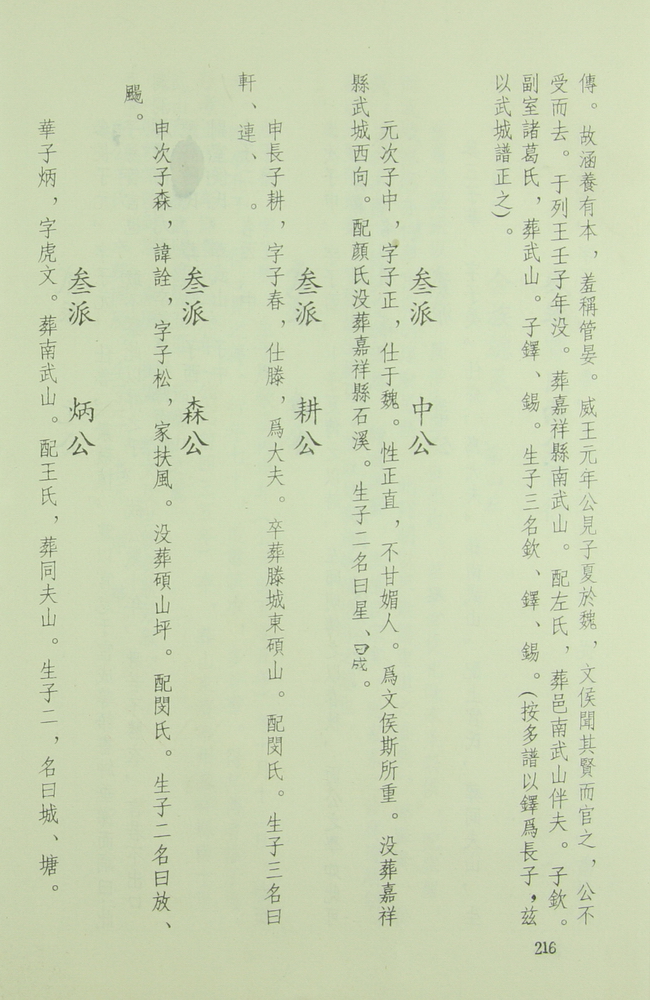 傳。故涵養有本，羞稱管晏。威王元年公見子夏於魏，文侯聞其賢而官之，公不
受而去。于列王壬子年没。葬嘉祥縣南武山。配左氏，葬邑南武山伴夫。子欽。
副室諸葛氏，葬武山。子鐸、錫。生子三名欽、鐸、錫。(按多譜以鐸爲長子，兹
以武城譜正之)。
叁派 中公
元次子中，字子正，仕于魏。性正直，不甘媚人。爲文侯斯所重。没葬嘉祥
縣武城西向。配顔氏没葬嘉祥縣石溪。生子二名曰星、曰成。
叁派 耕公
申長子耕，字子春，仕滕，爲大夫。卒葬滕城東碩山。配閔氏。生子三名曰
軒、連、。
叁派 森公
申次子森，諱詮，字子松，家扶風。没葬碩山坪。配閔氏。生子二名曰放、
颺。
叁派 炳公
華子炳，字虎文。葬南武山。配王氏，葬同夫山。生子二，名曰城、塘。
216